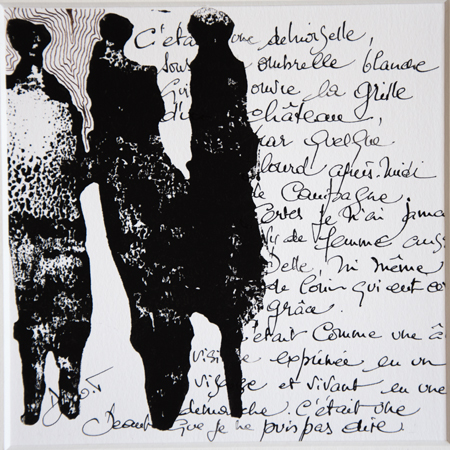 C'était une demoiselle,
sous ombrelle blanche
ouvre la grille
château,
par quelque
lourd après-midi
de Campagne
je n'ai jama
de femme aus
belle, ni même
de loin qui eut
grâce.
C'était comme une â
visible exprimée en un
visage et vivant en une
démarche. C'était une
Beauté que je ne puis pas dire